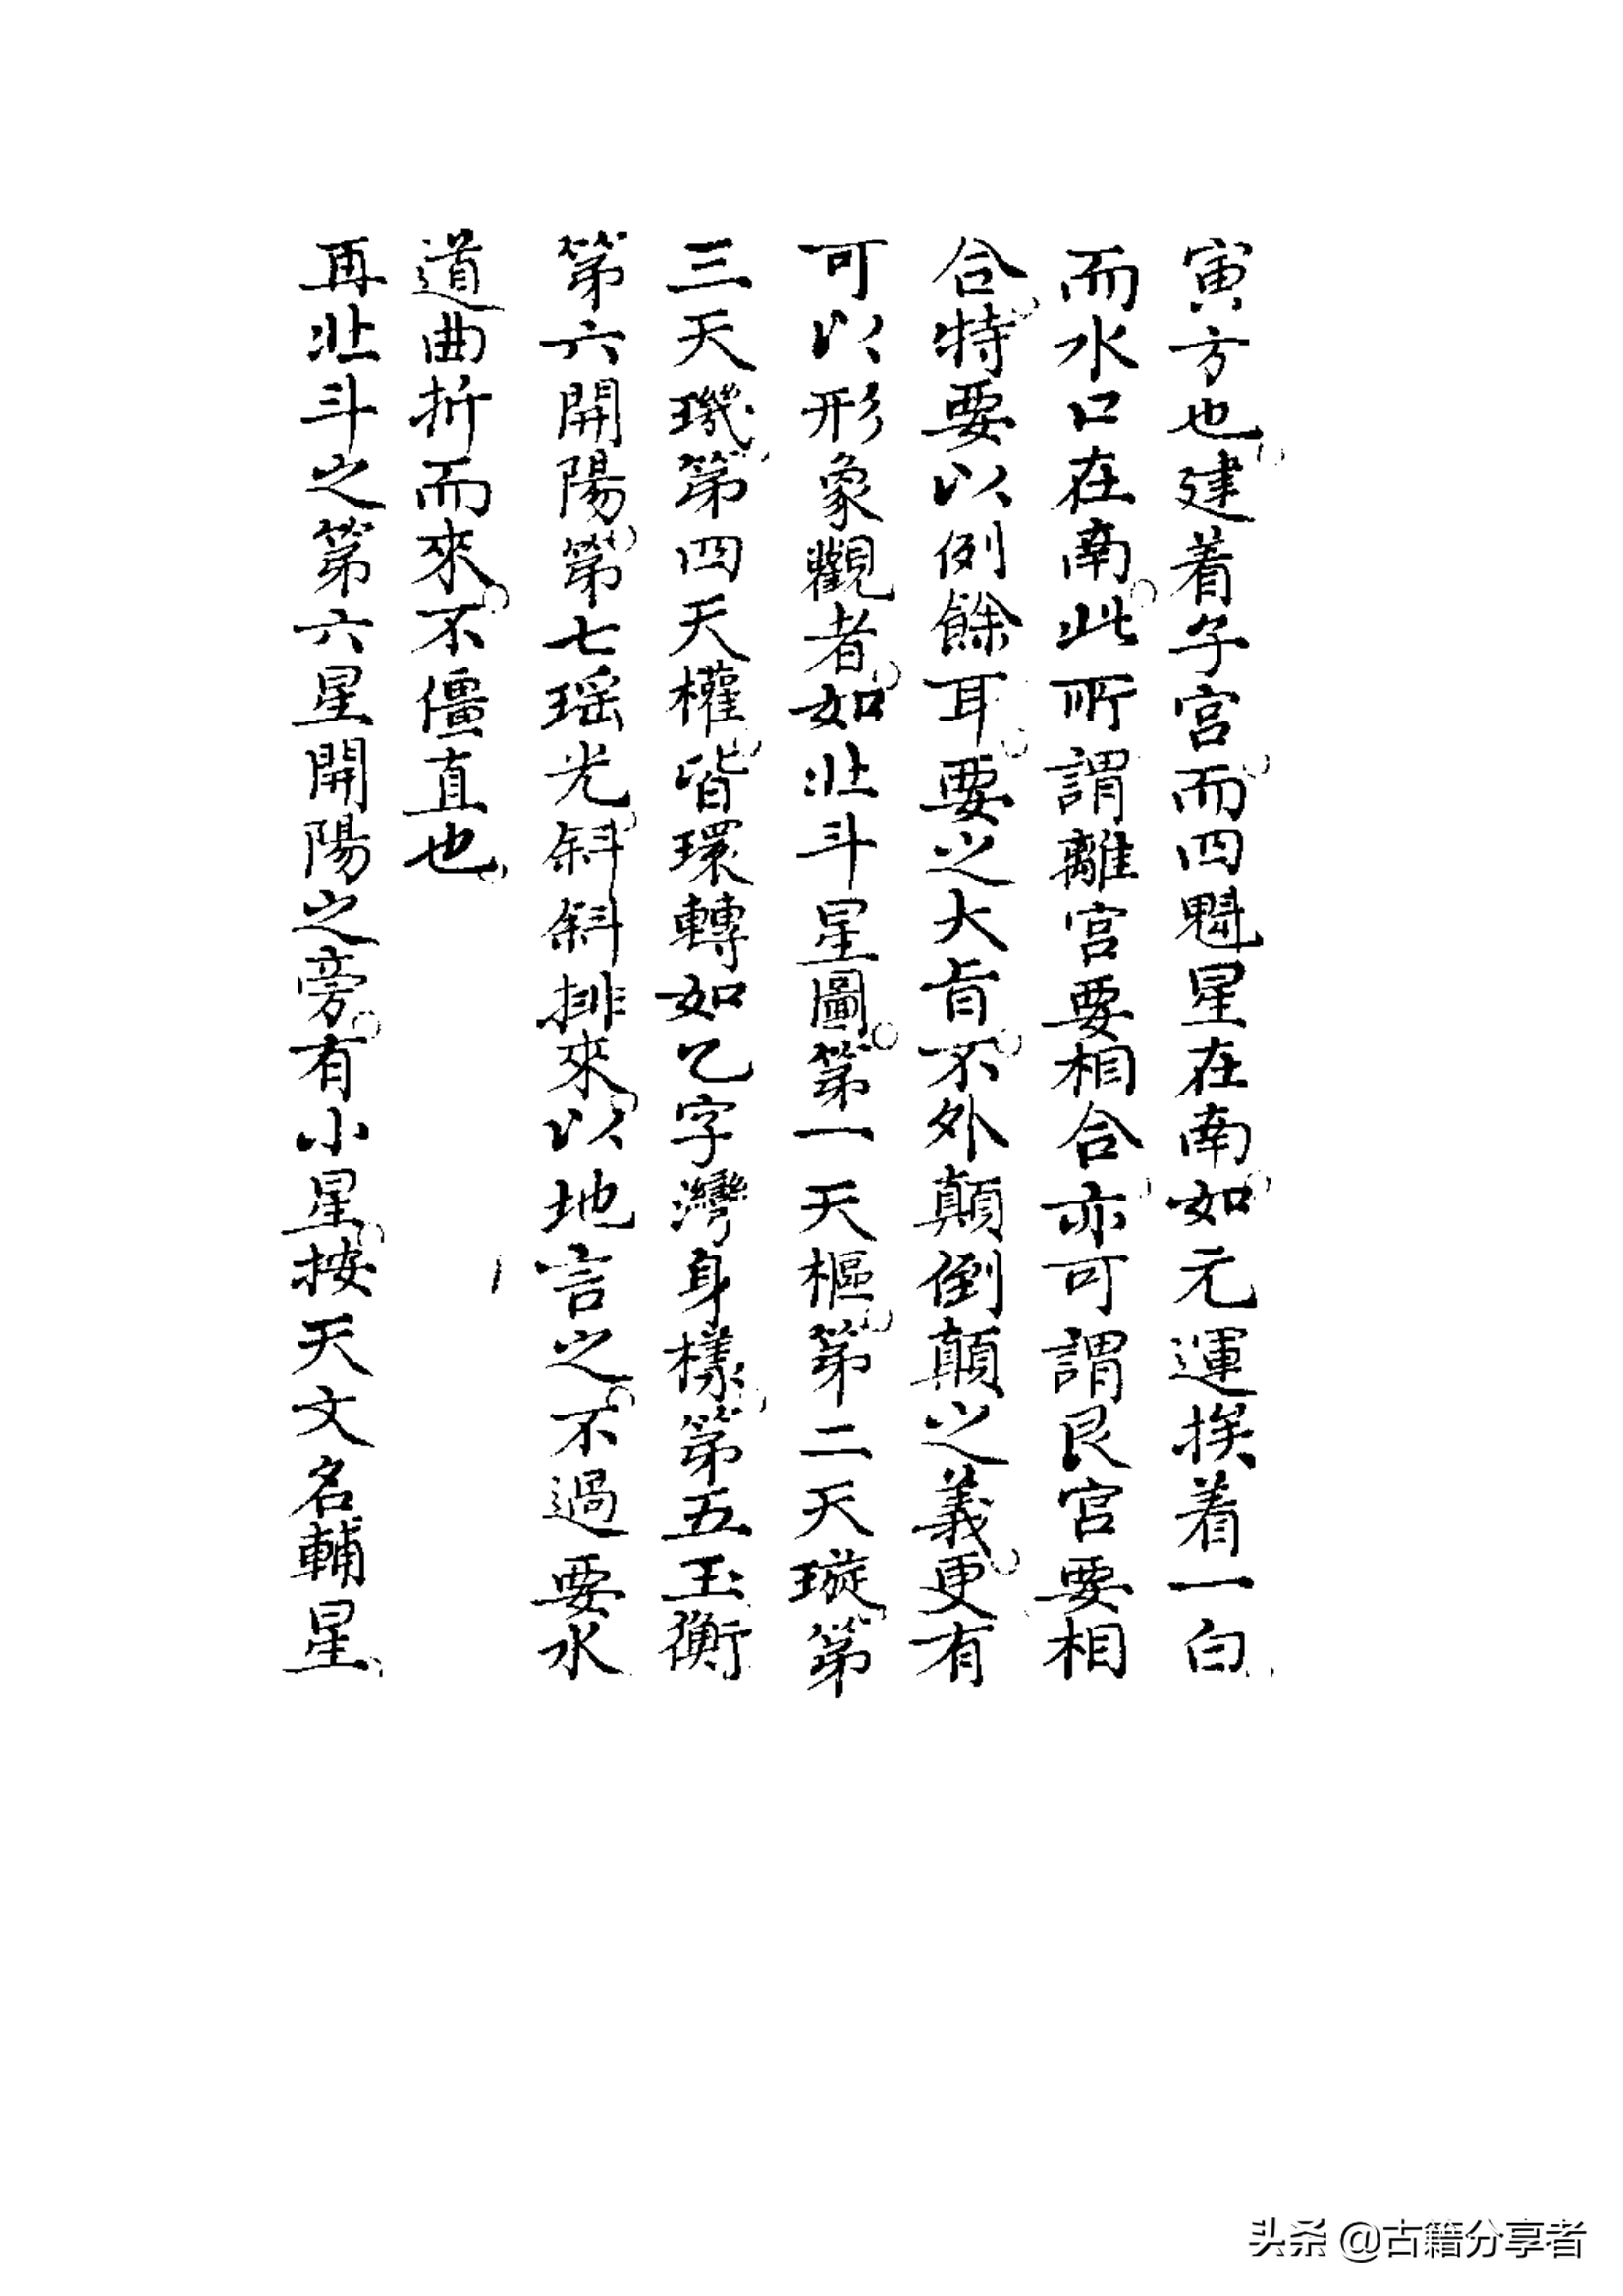 寅方也建着子宮而四魁星在南如元運挨着一白
而水口在南此所謂離宮要相合亦可謂艮宮要相
合特要以例餘耳要之大旨不外顛倒顛之義更有
可以形象觀者如北斗星圖第一天樞第二天璇第
三天璣第四天權皆環轉如乙字灣身樣第五玉衡
第六開陽第七瑶光斜斜排來以地言之不過要水
道曲折而來不僵直也
再北斗之第六星開陽之旁有小星按天文名輔星
头条 @古籍分享者